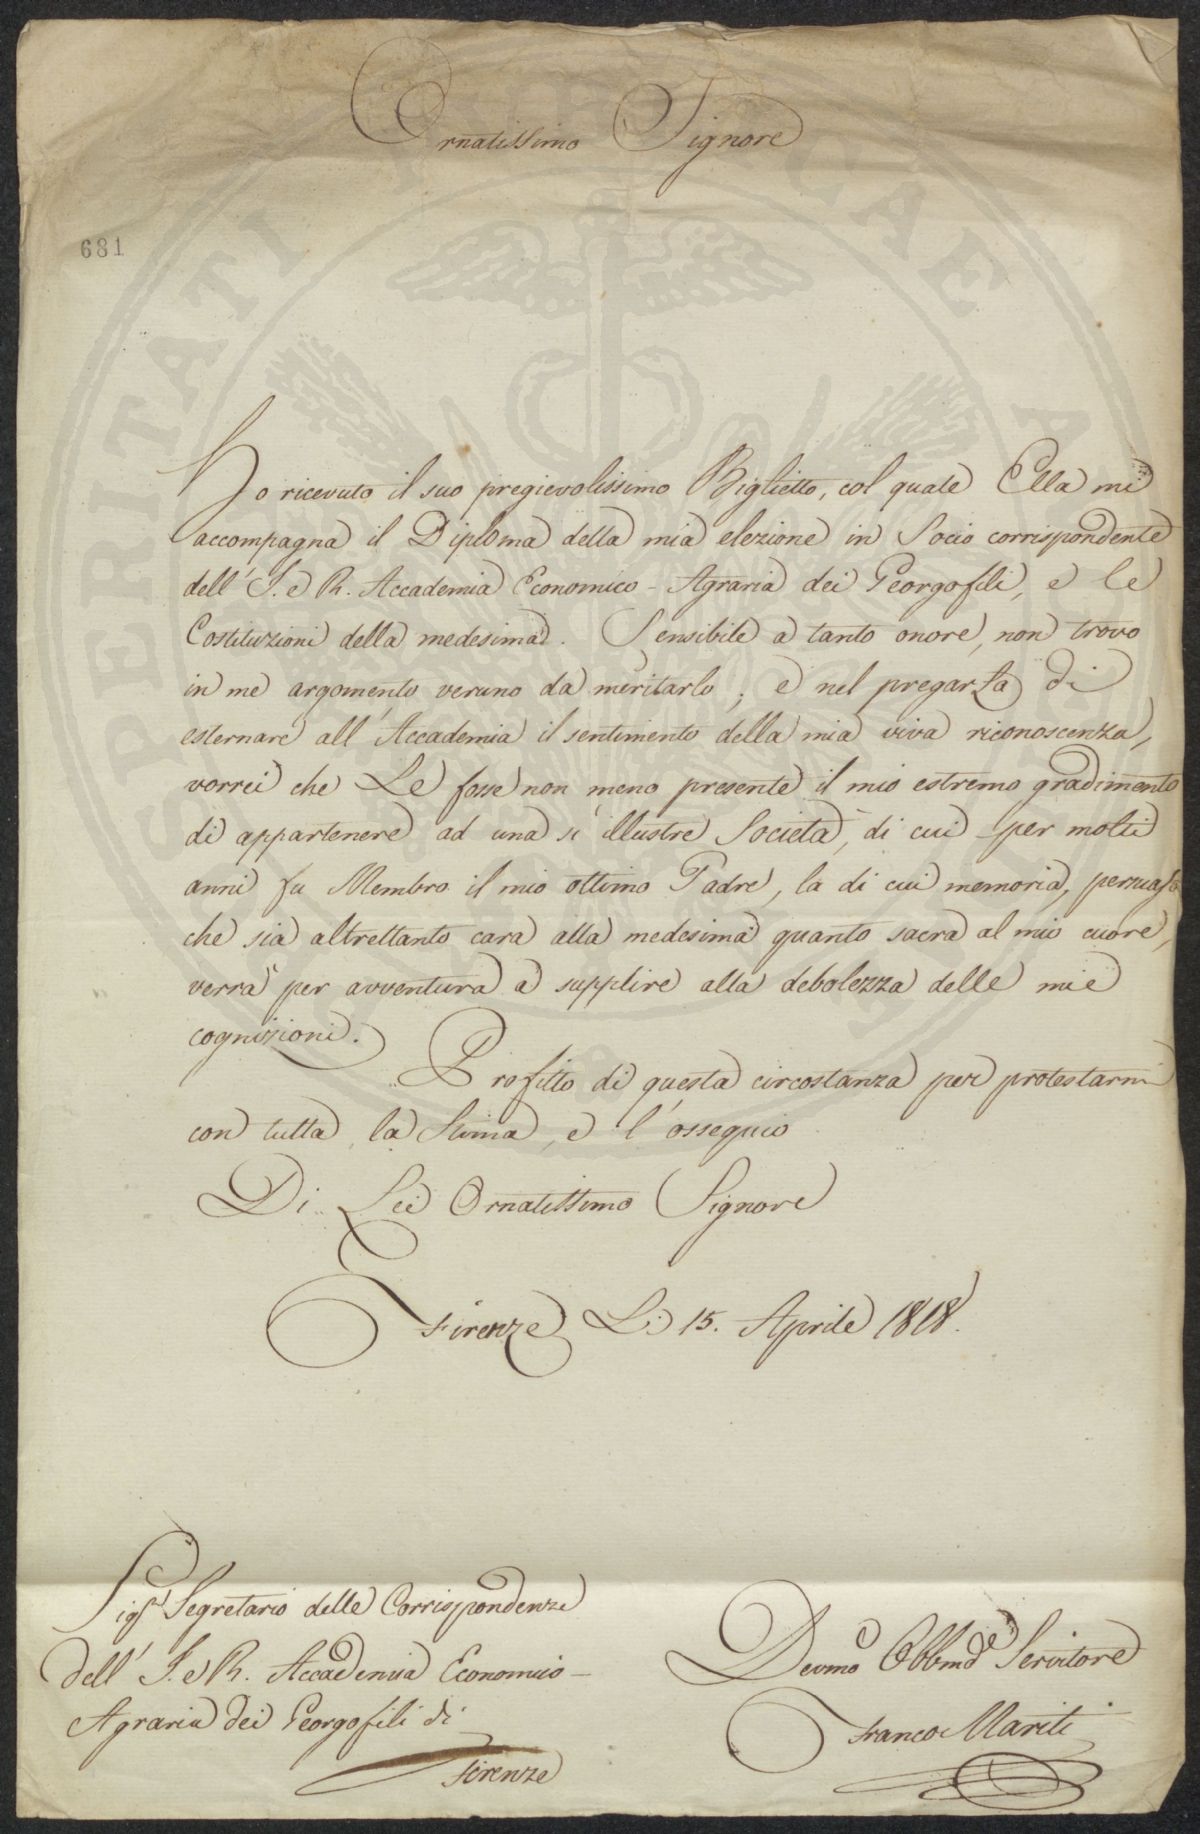 Ornatissimo Signore
681
Ho ricevuto il suo pregievolissimo Biglietto, col quale Ella mi
accompagna il Diploma della mia elezione in Socio corrispondente
dell' I. e R. Accademia Economico-Agraria dei Georgofili, e le
Costituzioni della medesima. Sensibile a tanto onore, non trovo
in me argomento veruno da meritarlo; e nel pregarLa di
esternare all' Accademia il sentimento della mia viva riconoscenza,
vorrei che Le fosse non meno presente il mio estremo gradimento
di appartenere ad una sì illustre Società, di cui per molti
anni fu Membro il mio ottimo Padre, la di cui memoria, persuaso
che sia altrettanto cara alla medesima quanto sacra al mio cuore,
verrà per avventura a supplire alla debolezza delle mie
cognizioni.
Profitto di questa circostanza per protestarmi
con tutta la Stima, e l' ossequio
Di Lei Ornatissimo Signore
Firenze Li 15. Aprile 1818.
Sigr. Segretario delle Corrispondenze
dell' I. e R. Accademia Economico-
Agraria dei Georgofili di
Firenze
Devmo Obbmo Servitore
Franco Mariti